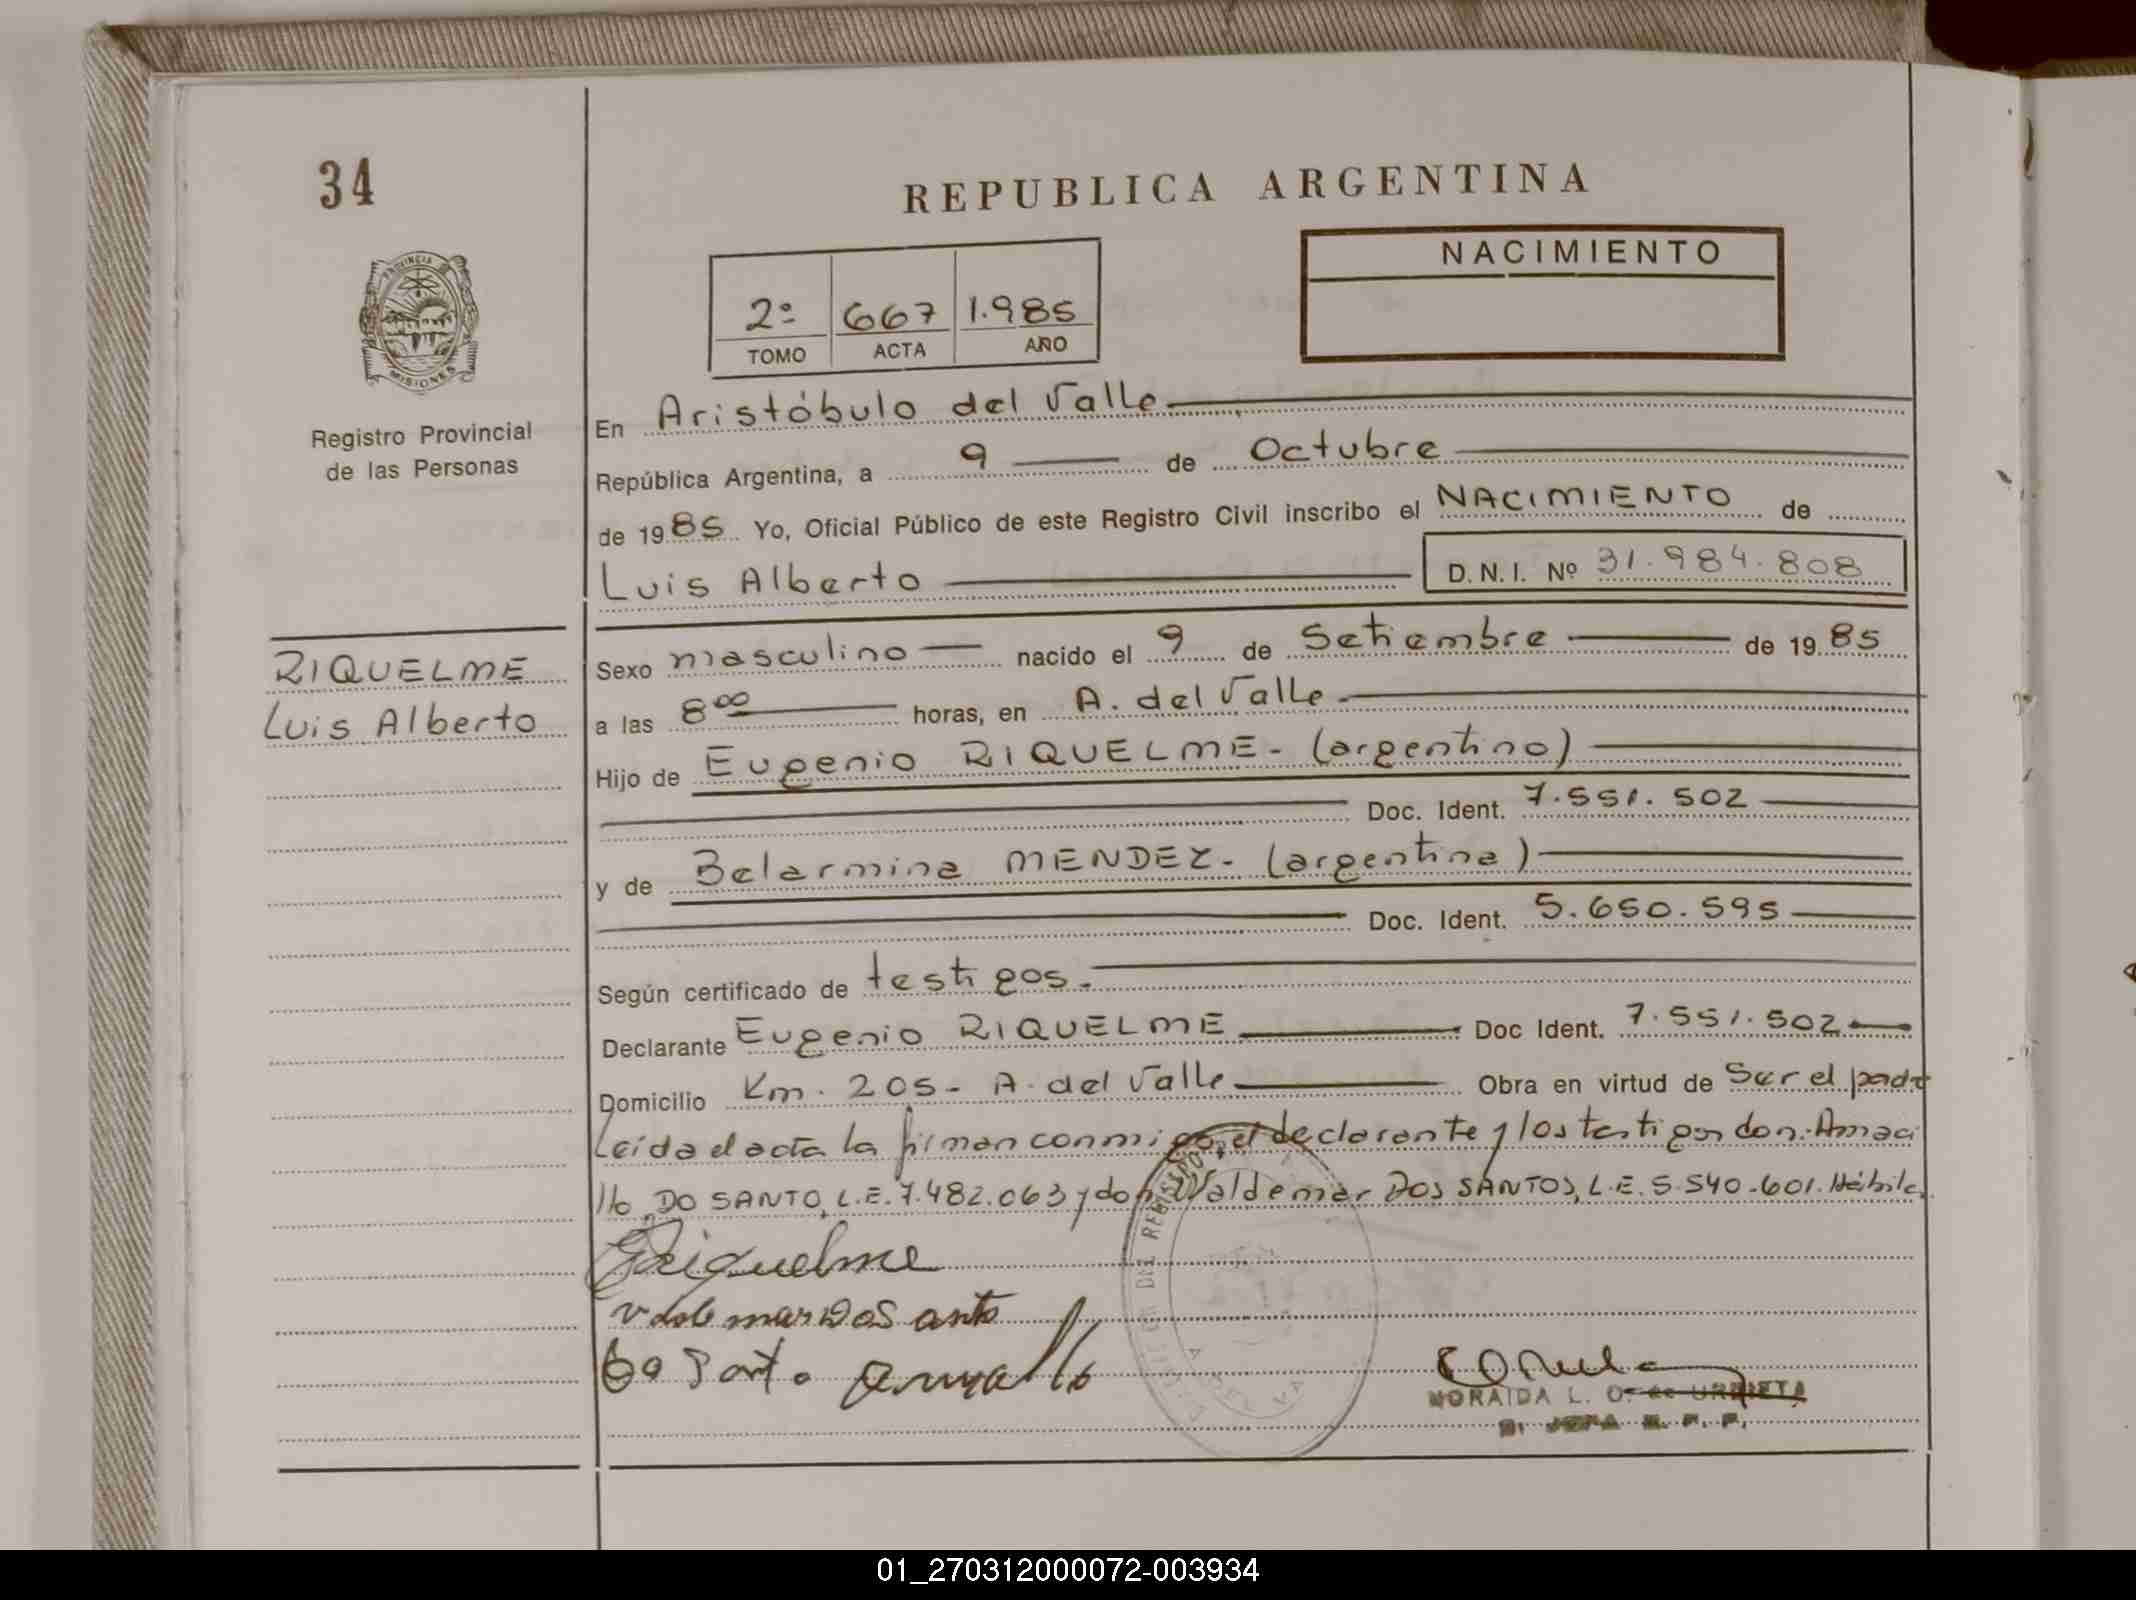 34
REPUBLICA ARGENTINA
NACIMIENTO
2º 667 1.985
TOMO ACTA AÑO
PROVINCIA
MISIONES
Registro Provincial
de las Personas
En Aristóbulo del Valle
República Argentina, a 9 de Octubre
de 1985 Yo, Oficial Público de este Registro Civil inscribo el NACIMIENTO de
Luis Alberto D.N.I. Nº 31.984.808
RIQUELME
Luis Alberto
Sexo masculino nacido el 9 de Setiembre de 1985
a las 8 00 horas, en A. del Valle
Hijo de Eugenio RIQUELME - (argentino)
Doc. Ident. 7.551.502
y de Belarmina MENDEZ - (argentina)
Doc. Ident. 5.650.595
Según certificado de testigos.
Declarante Eugenio RIQUELME Doc Ident. 7.551.502
Domicilio Km. 205 - A. del Valle Obra en virtud de Ser el padre
Leída el acta la firman conmigo, el declarante y los testigos don: Amaci
llo DO SANTO, L.E. 7.482.063 y don Valdemar DOS SANTOS, L.E. 5.540.601. Hábiles
Riquelme
NORAIDA L. O. de URRIETA
01_270312000072-003934